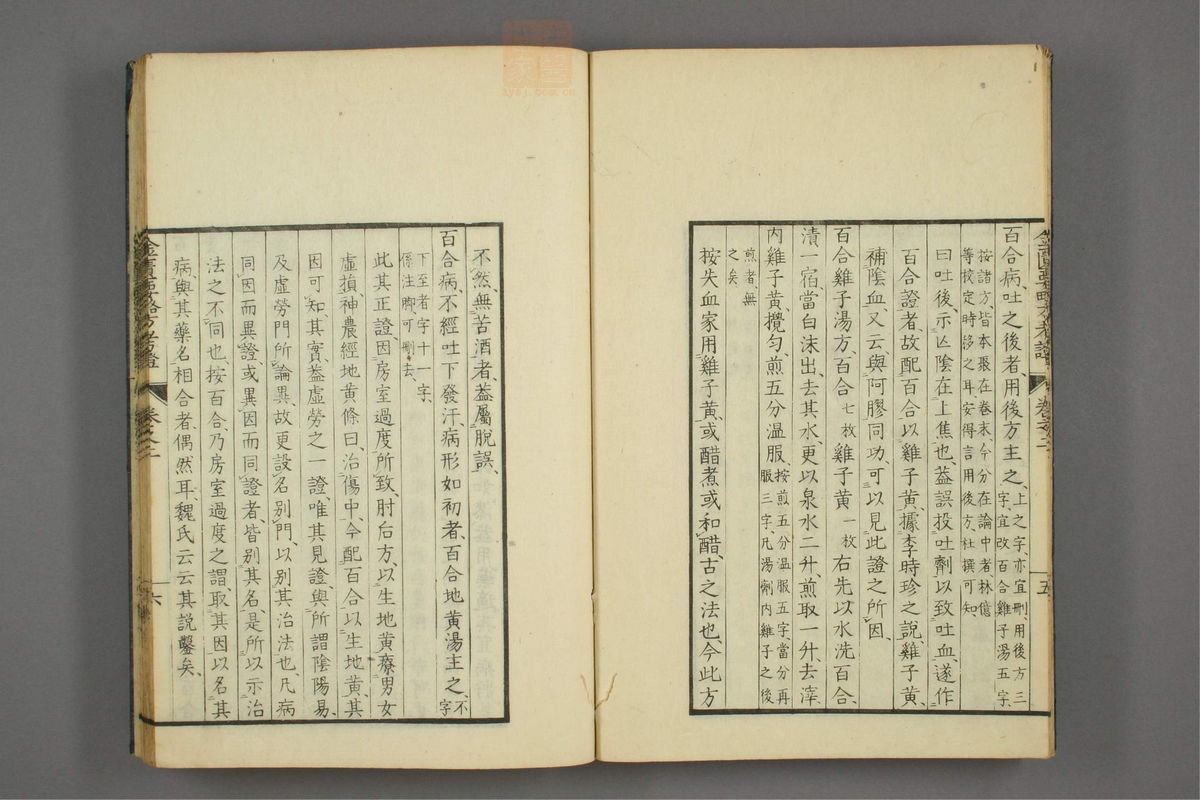 百合病、吐之後者、用後方主之、上之字、亦宜刪、用後方三字、宜改百合雞子湯五字、
按諸方、皆本聚在卷末、今分在論中者、林億等校定時移之耳、安得言用後方、杜撰可知、
曰吐後、示亡陰在上焦也、蓋誤投吐劑以致吐血、遂作
百合證者、故配百合以雞子黃、據李時珍之說、雞子黃、
補陰血、又云與阿膠同功、可以見此證之所因、
百合雞子湯方、百合七枚雞子黃一枚右先以水洗百合、
漬一宿、當白沫出、去其水、更以泉水二升、煎取一升、去滓、
內雞子黃、攪勻、煎五分溫服、按煎五分溫服五字、當分再服三字、凡湯劑內雞子之後
煎者、無之矣
按失血家用雞子黃、或醋煮或和醋、古之法也、今此方
金匱要略方考證
卷之二
五
不然、無苦酒者、蓋屬脫誤、
百合病、不經吐下發汗、病形如初者、百合地黃湯主之、不字
下至者字十一字、係注腳、可刪去、
此其正證、因房室過度所致、肘后方、以生地黃療男女
虛損、神農經地黃條曰、治傷中、今配百合以生地黃、其
因可知、其實蓋虛勞之一證、唯其見證、與所謂陰陽易、
及虛勞門所論異、故更設名別門、以別其治法也、凡病
同因而異證、或異因而同證者、皆別其名、是所以示治
法之不同也、按百合、乃房室過度之謂、取其因以名其
病、與其藥名相合者、偶然耳、魏氏云云、其說鑿矣、
金匱要略方考證
卷之二
六